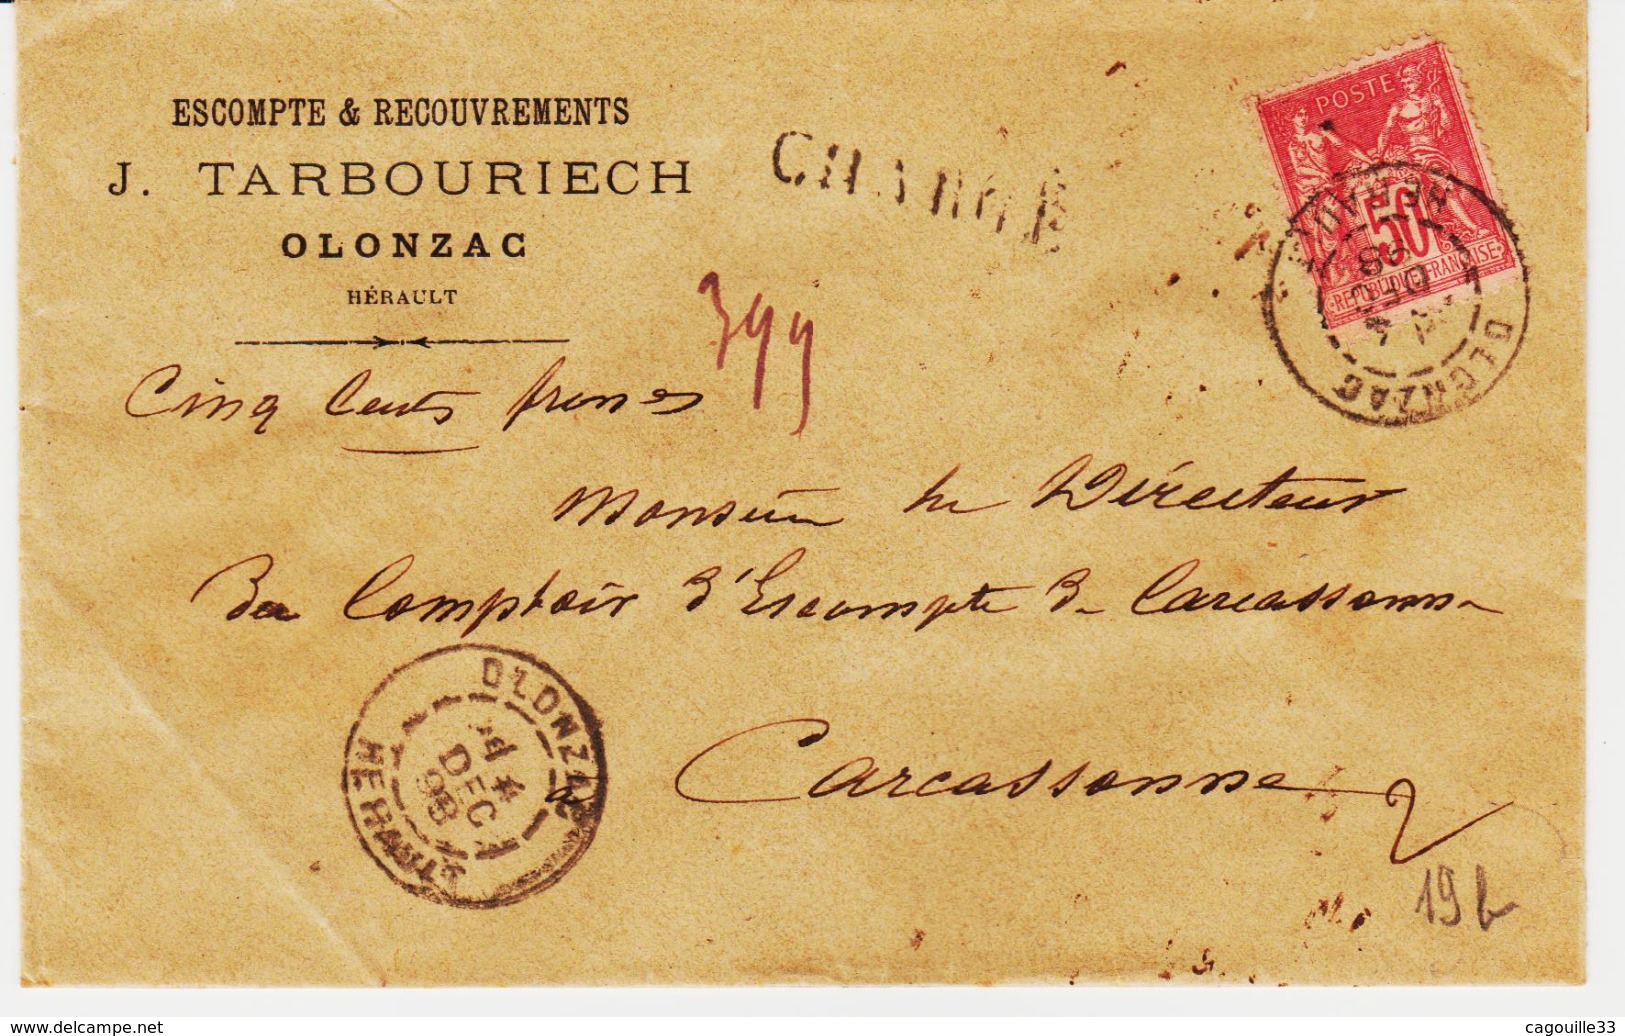 ESCOMPTE & RECOUVREMENTS
J. TARBOURIECH
OLONZAC
HÉRAULT
CHARGÉ
POSTE
50
REPUBLIQUE FRANÇAISE
OLONZAC
4
DEC
98
HERAULT
399
Cinq Cents francs
Monsieur le Directeur
Du Comptoir d'Escompte de Carcassonne
OLONZAC
4
DEC
98
HERAULT
à
Carcassonne
19
delcampe.net
cagouille33